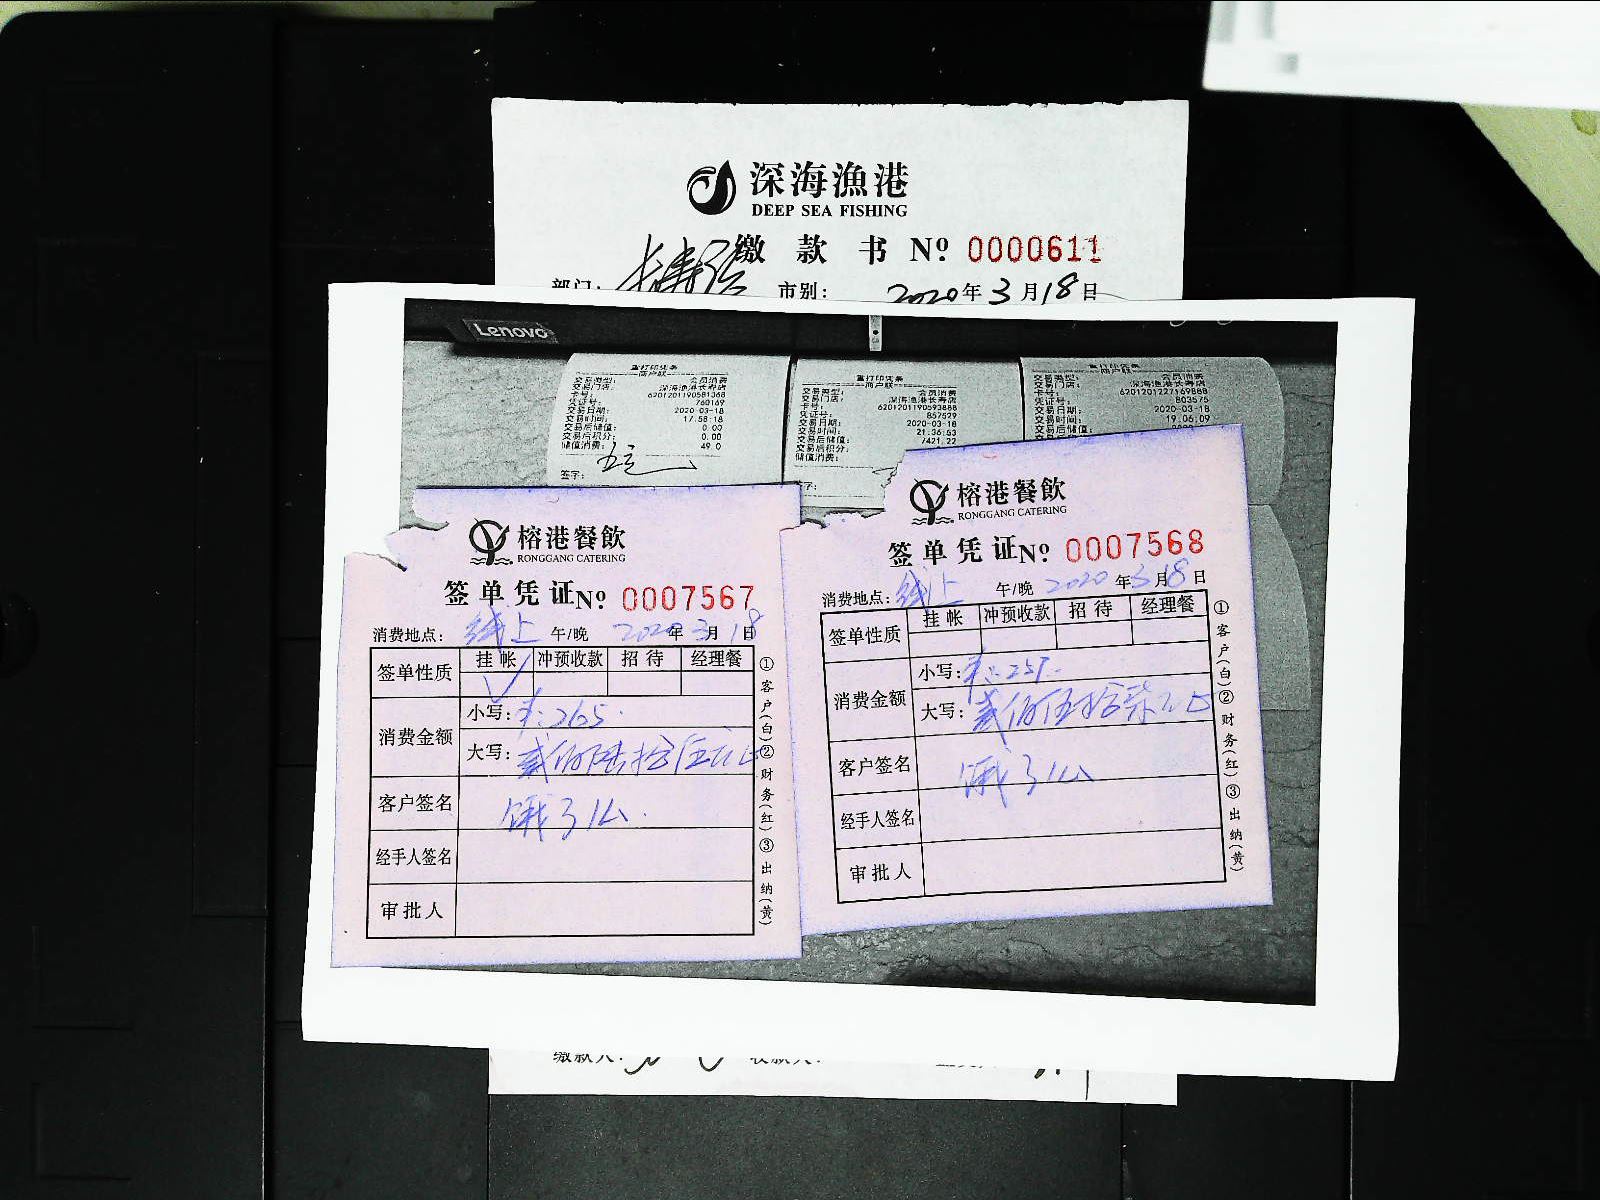 深海漁港
DEEP SEA FISHING
缴款书 Nº 0000611
部门: 长寿店 市别: 2020年3月18日
Lenovo
重打印凭条
商户联
交易类型: 会员消费
交易门店: 深海渔港长寿店
卡号: 6201201190581368
凭证号: 760169
交易日期: 2020-03-18
交易时间: 17:58:18
交易后储值: 0.00
交易后积分: 0.00
储值消费: 49.0
签字:
重打印凭条
商户联
交易类型: 会员消费
交易门店: 深海渔港长寿店
卡号: 6201201190593888
凭证号: 857529
交易日期: 2020-03-18
交易时间: 21:36:53
交易后储值: 7421.22
交易后积分:
储值消费:
字:
重打印凭条
商户联
交易类型: 会员消费
交易门店: 深海渔港长寿店
卡号: 6201201227169888
凭证号: 803575
交易日期: 2020-03-18
交易时间: 19:06:09
交易后储值:
榕港餐飲
RONGGANG CATERING
签单凭证Nº 0007567
消费地点: 线上 午/晚 2020年3月18日
签单性质 挂帐 冲预收款 招待 经理餐
✓
消费金额
小写: ¥:265.
大写: 贰佰陆拾伍元正
客户签名 饿了么.
经手人签名
审批人
①客户(白)②财务(红)③出纳(黄)
榕港餐飲
RONGGANG CATERING
签单凭证Nº 0007568
消费地点: 线上 午/晚 2020年3月18日
签单性质 挂帐 冲预收款 招待 经理餐
消费金额
小写: ¥:257.
大写: 贰佰伍拾柒元正
客户签名 饿了么
经手人签名
审批人
①客户(白)②财务(红)③出纳(黄)
缴款人: 收款人: